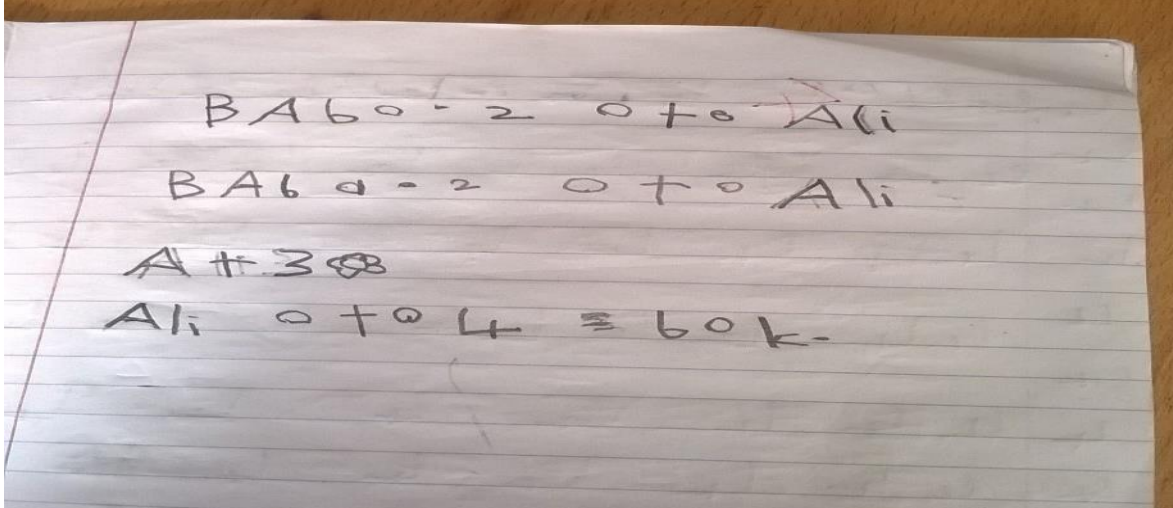 BAbo - 2 oto Ali
BAba - 2 oto Ali
Ali oto 4 = 60k.